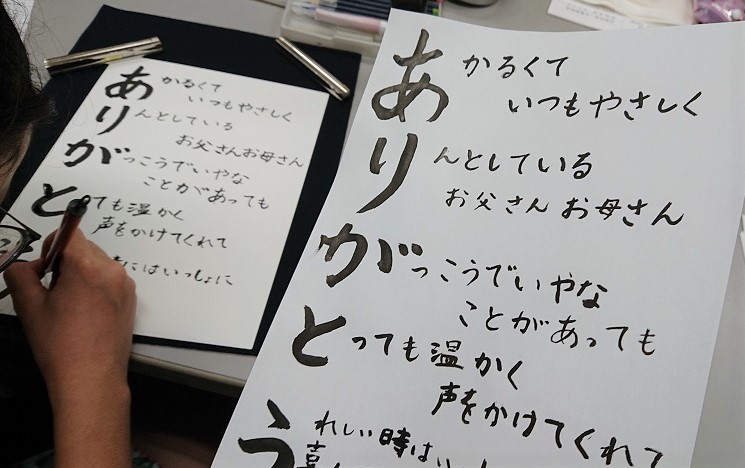 あかるくて
いつもやさしく
りんとしている
お父さんお母さん
がっこうでいやな
ことがあっても
とっても温かく
声をかけてくれて
にはいっしょに
あかるくて
いつもやさしく
りんとしている
お父さんお母さん
がっこうでいやな
ことがあっても
とっても温かく
声をかけてくれて
うれしい時はい
喜